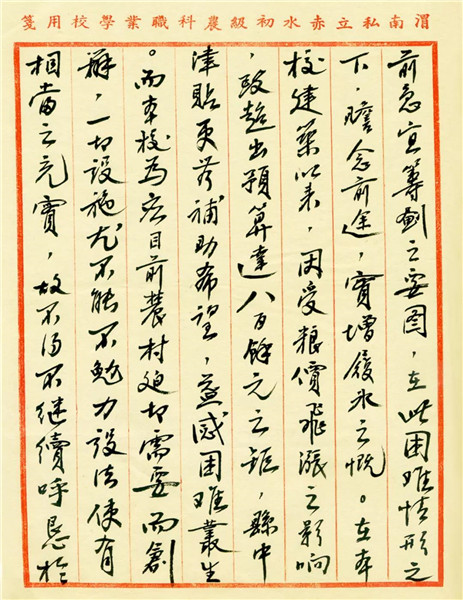 渭南私立赤水初級農科職業學校用箋
前急宜籌劃之要圖，在此困难情形之
下，瞻念前途，實增履冰之慨。在本
校建築以来，因受粮價飛漲之影响
，致超出預算達八百餘元之鉅，縣中
津貼更補助希望，益感困难叢生
。而本校為应目前農村廹切需要而創
辦，一切设施尤不能不勉力设法使有
相當之充實，故不得不继續呼恳於